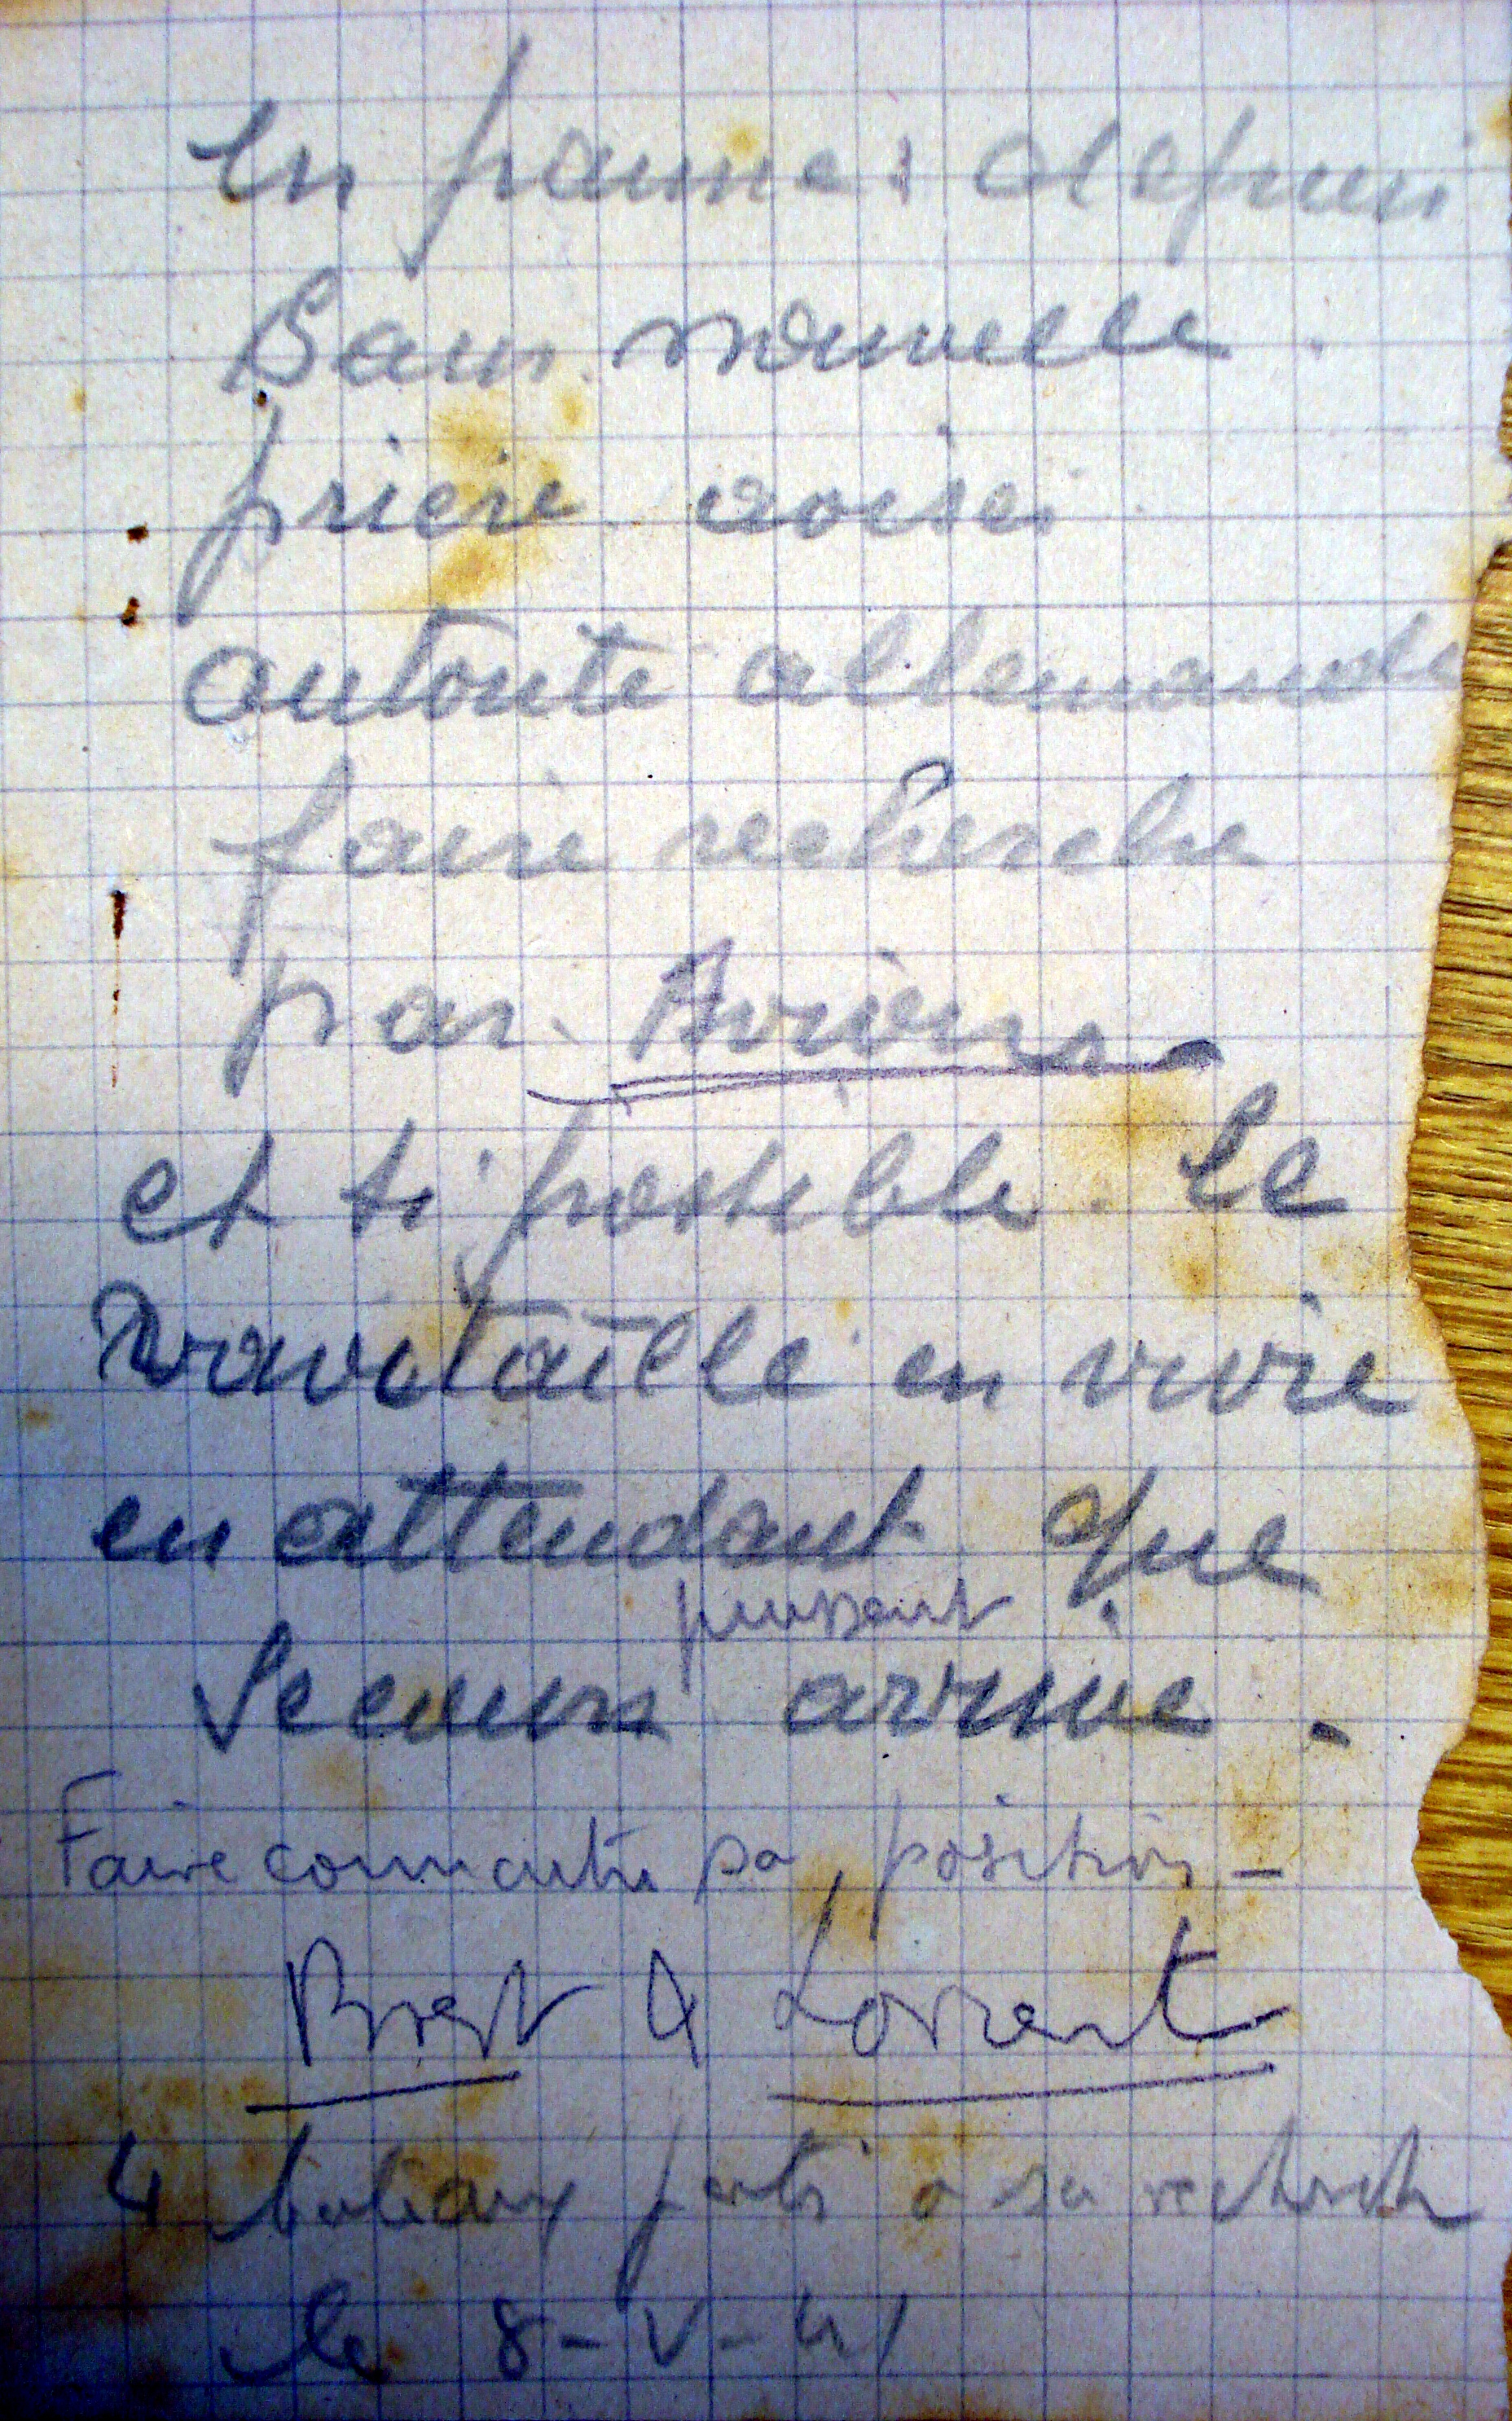 en panne : depuis
Sans nouvelle .
prière aviser
autorité allemande
faire recherche
par Avions
et si possible . le
ravitaille en vivre
en attendant que
puissent
Secours arrive -
Faire connaitre sa position -
Brest & Lorient
4 bateaux partis à sa recherche
le 8 - V - 41